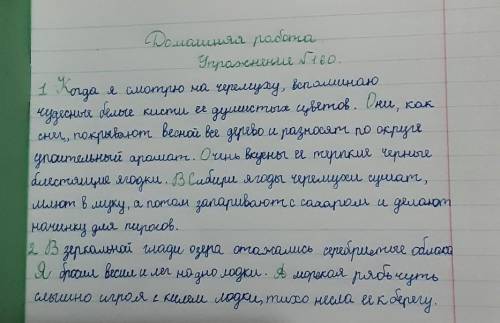 Домашняя работа
Упражнение №160.
1 Когда я смотрю на черемуху, вспоминаю
чудесные белые кисти ее душистых цветов. Они, как
снег, покрывают весной все дерево и разносят по округе
упоительный аромат. Очень вкусны ее терпкие черные
блестящие ягодки. В Сибири ягоды черемухи сушат,
мелют в муку, а потом запаривают с сахаром и делают
начинку для пирогов.
2 В зеркальной глади озера отажались серебристые облака
Я бросил весла и лег на дно лодки. А морская рябь чуть
слышно играя с килем лодки, тихо несла ее к берегу.